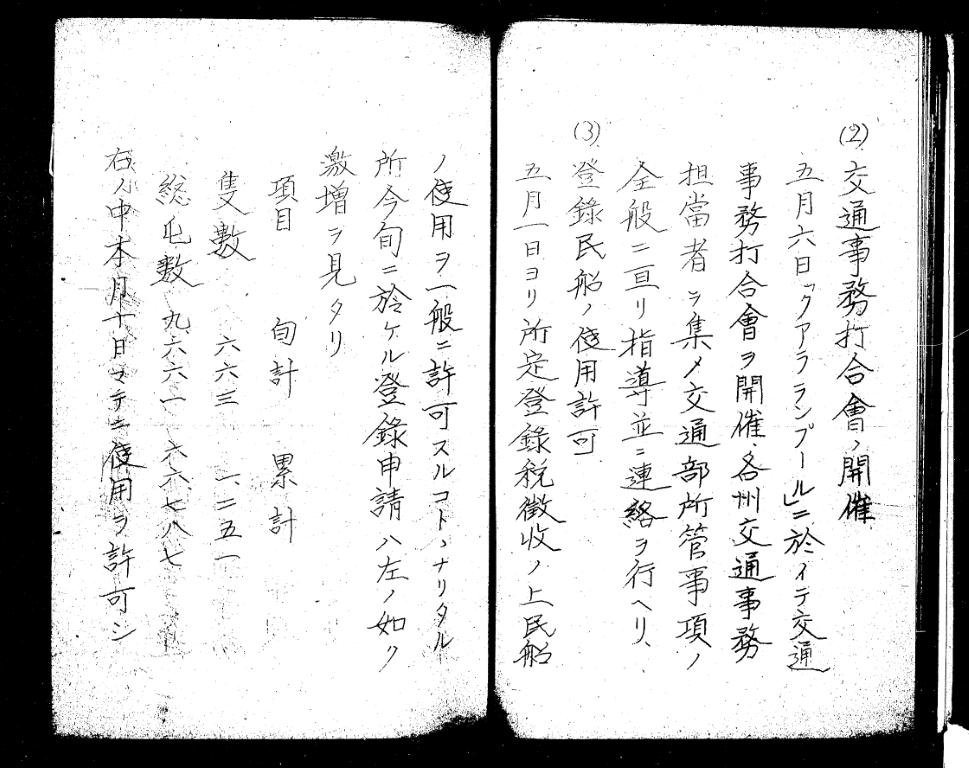 (2) 交通事務打合會ノ開催
五月六日「クアラランプール」ニ於イテ交通
事務打合會ヲ開催、各州交通事務
担當者ヲ集メ交通部所管事項ノ
全般ニ亘リ指導並ニ連絡ヲ行ヘリ、
(3) 登錄民船ノ使用許可
五月一日ヨリ所定登錄税徴收ノ上民船
ノ使用ヲ一般ニ許可スルコトヽナリタル
所今旬ニ於ケル登錄申請ハ左ノ如ク
激増ヲ見タリ
項目 旬計 累計
隻數 六六三 一二五一
総屯數 九六六一 六六七八七
右ノ中本月十日マデニ使用ヲ許可シ